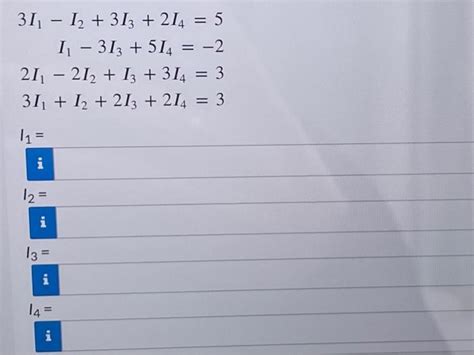 3I₁ − I₂ + 3I₃ + 2I₄ = 5
I₁ − 3I₃ + 5I₄ = −2
2I₁ − 2I₂ + I₃ + 3I₄ = 3
3I₁ + I₂ + 2I₃ + 2I₄ = 3
I₁ =
i
I₂ =
i
I₃ =
i
I₄ =
i